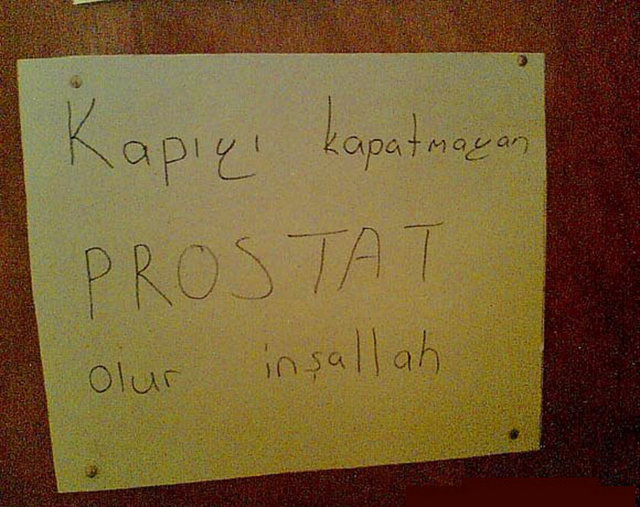 Kapıyı kapatmayan
PROSTAT
olur inşallah